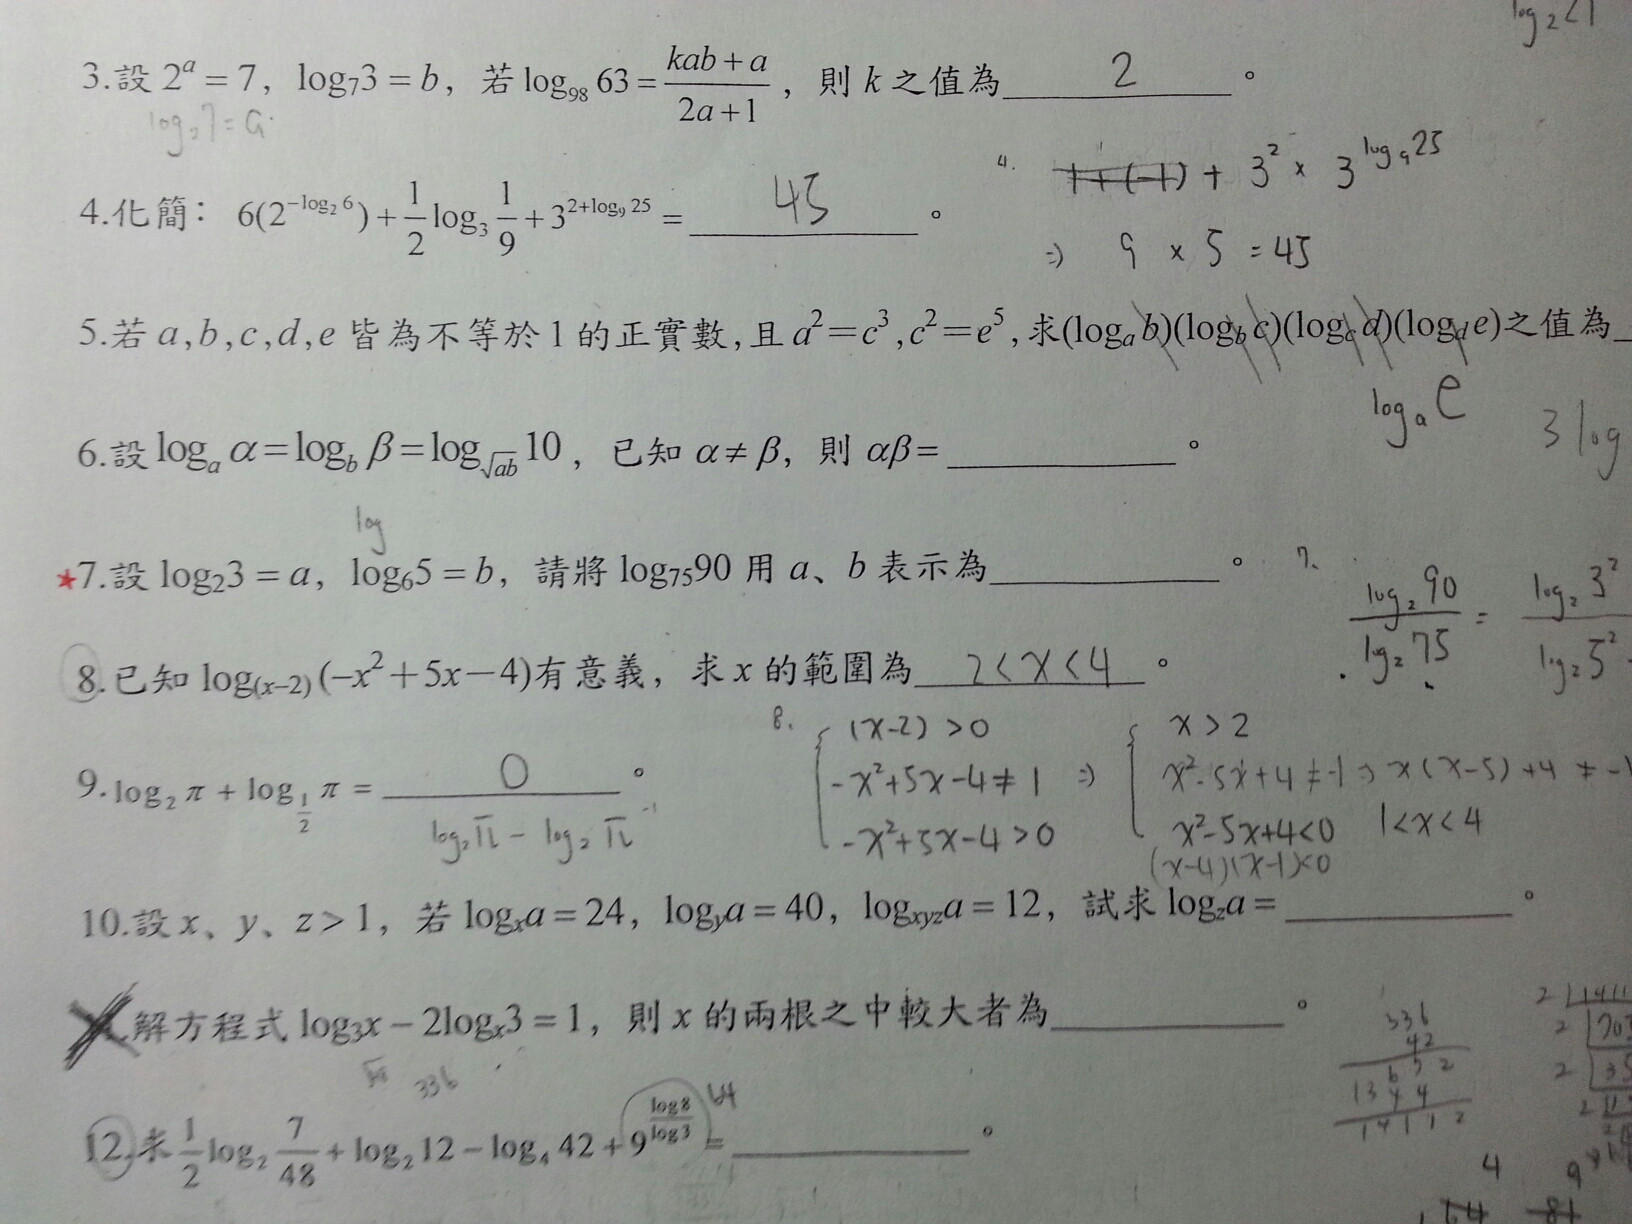 log₂ <1
3.設 2ᵃ = 7, log₇3 = b, 若 log₉₈ 63 = (kab + a)/(2a + 1), 則 k 之值為 2 。
log₂7 = a
4. 1+(-1) + 3² × 3^(log₉25)
4.化簡: 6(2^(-log₂ 6)) + 1/2 log₃ 1/9 + 3^(2+log₉ 25) = 45 。
=> 9 × 5 = 45
5.若 a,b,c,d,e 皆為不等於1的正實數,且 a²=c³,c²=e⁵,求(logₐ b)(log_b c)(log_c d)(log_d e)之值為
logₐ e
3 log
6.設 logₐ α=log_b β=log_√ab 10, 已知 α≠β, 則 αβ= 。
log
★7.設 log₂3 = a, log₆5 = b, 請將 log₇₅90 用 a、b 表示為 。
7. log₂ 90 / log₂ 75 = log₂ 3² / log₂ 5²
8.已知 log₍ₓ₋₂₎ (−x²+5x−4)有意義, 求 x 的範圍為 2<x<4 。
8. (x-2) >0 x>2
-x²+5x-4≠1 => x²-5x+4≠-1 => x(x-5)+4 ≠-1
-x²+5x-4>0 x²-5x+4<0 1<x<4
(x-4)(x-1)<0
9.log₂ π + log_(1/2) π = 0 。
log₂ π - log₂ π
10.設 x、y、z > 1, 若 logₓa = 24, log_y a = 40, log_xyz a = 12, 試求 log_z a = 。
解方程式 log₃x − 2logₓ3 = 1, 則 x 的兩根之中較大者為 。
336
42
672
1344
14112
2 1411
2
2
2
336
64
12.求 1/2 log₂ 7/48 + log₂ 12 − log₄ 42 + 9^(log8/log3) = 。
4 9